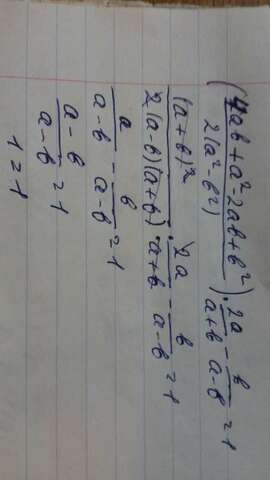 (4ab+a²-2ab+b² / 2(a²-b²)) · 2a/a+b - b/a-b = 1
(a+b)² / 2(a-b)(a+b) · 2a/a+b - b/a-b = 1
a/a-b - b/a-b = 1
a-b/a-b = 1
1=1